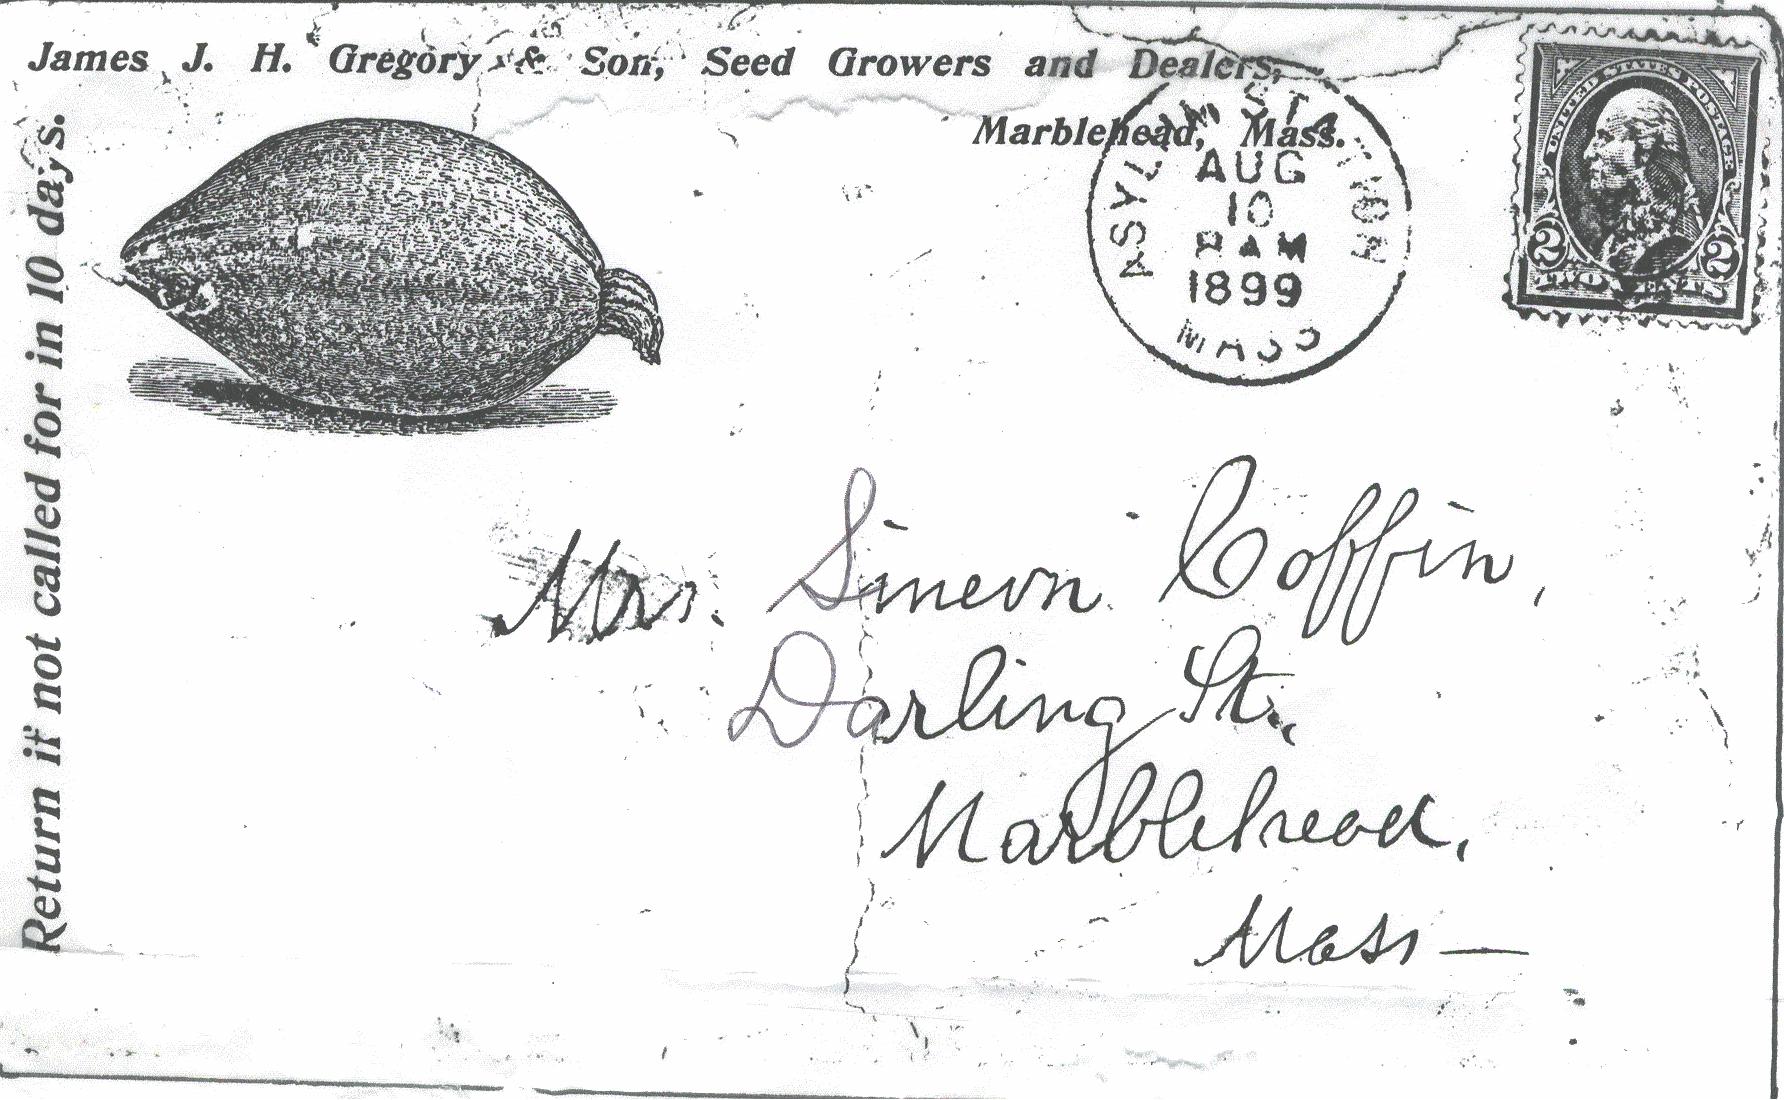 James J. H. Gregory & Son, Seed Growers and Dealers,
Marblehead, Mass.
Return if not called for in 10 days.
ASYLUM STATION
AUG
10
8 AM
1899
MASS
UNITED STATES POSTAGE
2 2
TWO CENTS
Mrs. Simeon Coffin,
Darling St.,
Marblehead,
Mass —